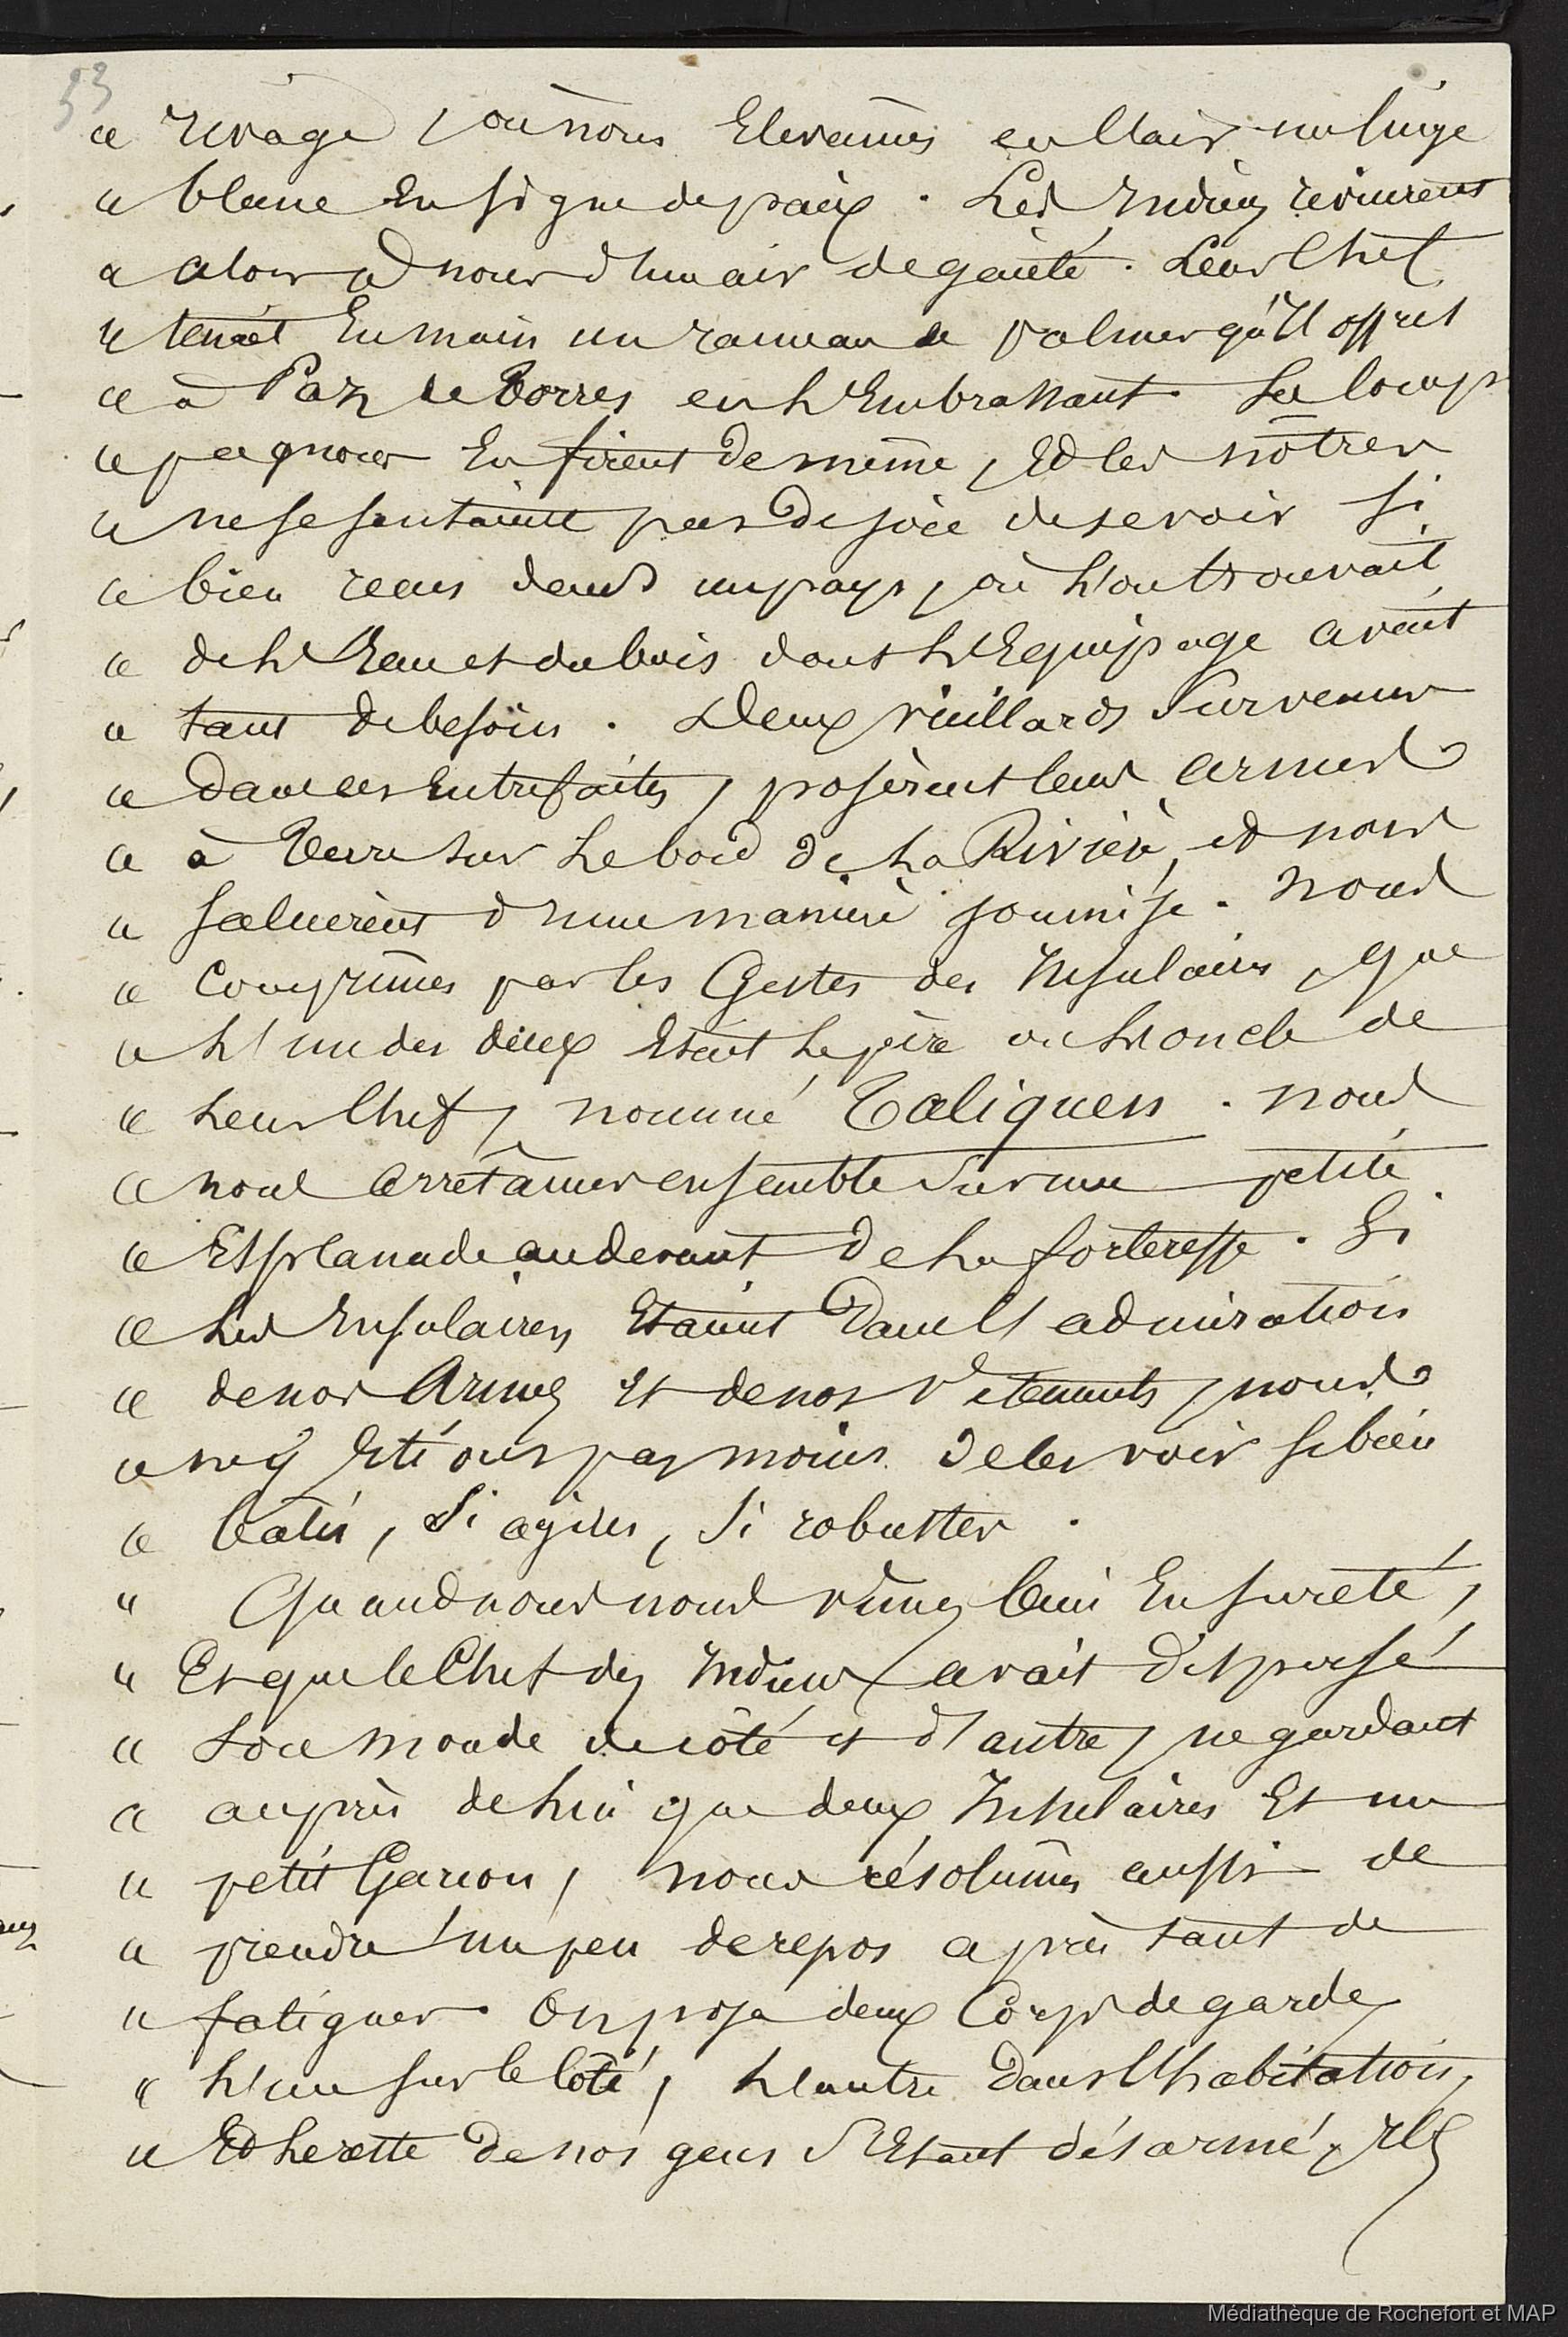 53
« rivage, où nous Elevames en l'air un linge
« blanc en signe de paix. Les Indiens revinrent
« alors à nous d'un air de gaieté. Leur Chef
« tenait En main un rameau de palmier qu'Il offrit
« à Paz de Torres en L'Embrassant. Ses Com
« pagnons En firent de même, Et les nôtres
« ne se sentaient pas de joie de se voir si
« bien recus dans un pays, où L'on trouvait
« de L'Eau et du bois dont L'Equipage avait
« tant de besoin. Deux vieillards Survenus
« dans ces Entrefaites, posèrent leurs armes
« à Terre sur Le bord de La Rivière, et nous
« saluèrent d'une manière soumise. Nous
« Comprîmes par les Gestes des Insulaires, que
« L'un des deux Etait Le père ou L'oncle de
« Leur Chef, nommé Taliquen. Nous
« nous arretâmes ensemble Sur une petite
« Esplanade au devant de La forteresse. Si
« Les Insulaires Etaient Dans l'admiration
« de nos Armes Et de nos Vêtements, nous
« n'y Etions pas moins de les voir si bien
« batis, Si agiles, Si robustes.
« Quand nous nous vîmes bien En sureté,
« Et que le Chef des Indiens avait dispersé
« Son monde de côté et d'autre, ne gardant
« auprès de Lui que deux Insulaires Et un
« petit Garcon, nous résolumes aussi de
« prendre un peu de repos après tant de
« fatigues. On posa deux Corps de garde,
« L'un sur le Côté, L'autre Dans l'habitation,
« Et Le reste de nos gens S'Etant désarmé, Ils
Médiathèque de Rochefort et MAP